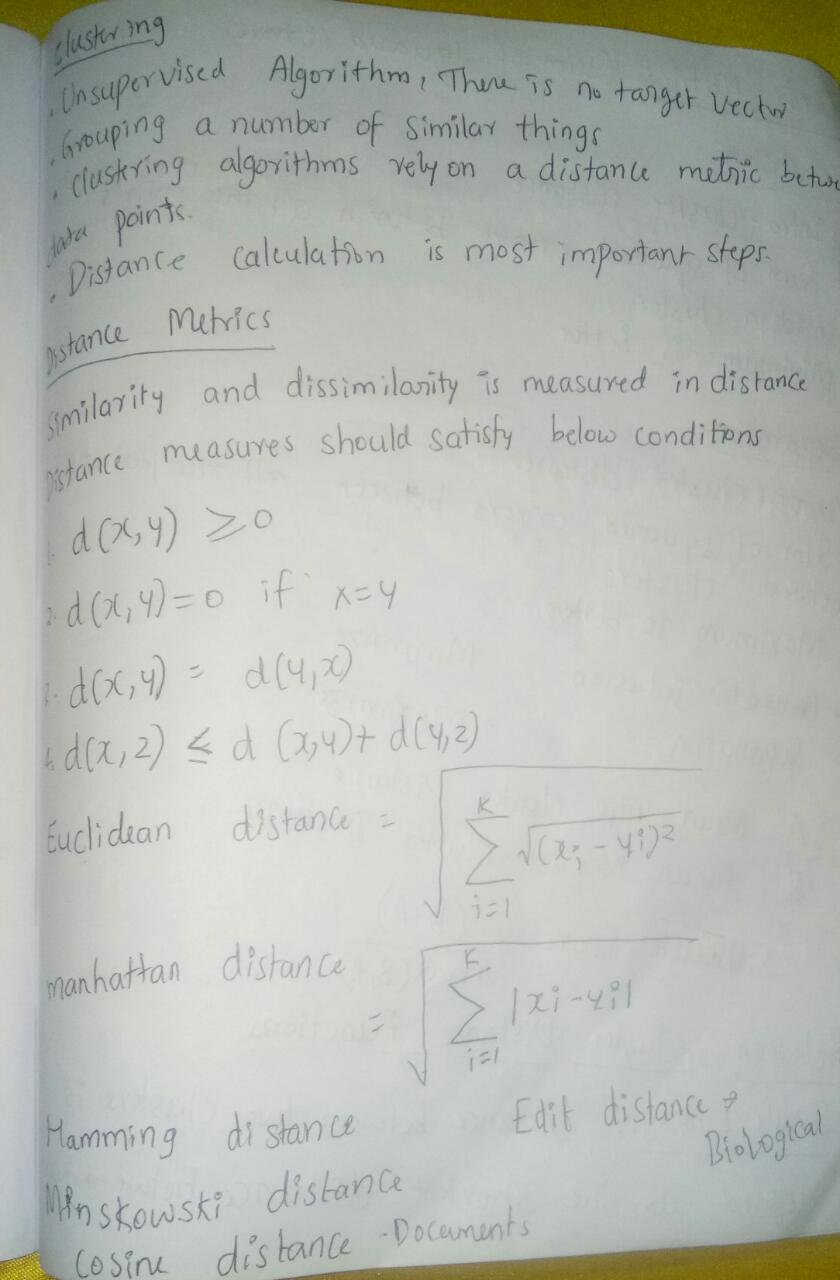 Clustering
. Unsupervised Algorithm, There is no target Vector
. Grouping a number of similar things
. Clustering algorithms rely on a distance metric betwe
data points.
. Distance calculation is most important steps.
Distance Metrics
Similarity and dissimilarity is measured in distance
Distance measures should satisfy below conditions
1. d(x,y) ≥ 0
2. d(x,y) = 0 if x=y
3. d(x,y) = d(y,x)
4. d(x,z) ≤ d(x,y) + d(y,z)
Euclidean distance = √(∑_{i=1}^{K} √(xi - yi)²)
manhattan distance = √(∑_{i=1}^{K} |xi - yi|)
Hamming distance Edit distance → Biological
Minskowski distance
Cosine distance - Documents